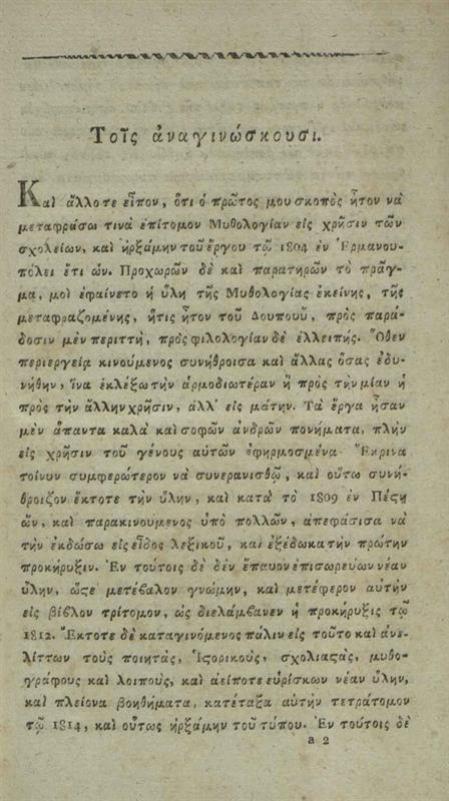 Τοῖς ἀναγινώσκουσι.
Καὶ ἄλλοτε εἶπον, ὅτι ὁ πρῶτος μου σκοπὸς ἦτον νὰ
μεταφράσω τινὰ ἐπίτομον Μυθολογίαν εἰς χρῆσιν τῶν
σχολείων, καὶ ἠρξάμην τοῦ ἔργου τῷ 1804 ἐν Ἑρμανου-
πόλει ἔτι ὤν. Προχωρῶν δὲ καὶ παρατηρῶν τὸ πρᾶγ-
μα, μοὶ ἐφαίνετο ἡ ὕλη τῆς Μυθολογίας ἐκείνης, τῆς
μεταφραζομένης, ἥτις ἦτον τοῦ Δουπουῢ, πρὸς παρά-
δοσιν μὲν περιττὴ, πρὸς φιλολογίαν δὲ ἐλλειπής. Ὅθεν
περιεργείᾳ κινούμενος συνήθροισα καὶ ἄλλας ὅσας ἐδυ-
νήθην, ἵνα ἐκλέξω τὴν ἁρμοδιωτέραν ἢ πρὸς τὴν μίαν ἢ
πρὸς τὴν ἄλλην χρῆσιν, ἀλλ' εἰς μάτην. Τὰ ἔργα ἦσαν
μὲν ἅπαντα καλὰ καὶ σοφῶν ἀνδρῶν πονήματα, πλὴν
εἰς χρῆσιν τοῦ γένους αὐτῶν ἐφηρμοσμένα Ἔκρινα
τοίνυν συμφερώτερον νὰ συνερανισθῇ, καὶ οὕτω συνή-
θροιζον ἔκτοτε τὴν ὕλην, καὶ κατὰ τὸ 1809 ἐν Πέϛῃ
ὢν, καὶ παρακινούμενος ὑπὸ πολλῶν, ἀπεφάσισα νὰ
τὴν ἐκδώσω εἰς εἶδος λεξικοῦ, καὶ ἐξέδωκα τὴν πρώτην
προκήρυξιν. Ἐν τούτοις δὲ δὲν ἔπαυον ἐπισωρεύων νέαν
ὕλην, ὥϛε μετέβαλον γνώμην, καὶ μετέφερον αὐτὴν
εἰς βίβλον τρίτομον, ὡς διελάμβανεν ἡ προκήρυξις τῷ
1812. Ἔκτοτε δὲ καταγινόμενος πάλιν εἰς τοῦτο καὶ ἀνε-
λίττων τοὺς ποιητὰς, Ἱϛορικοὺς, σχολιαϛὰς, μυθο-
γράφους καὶ λοιποὺς, καὶ ἀείποτε εὑρίσκων νέαν ὕλην,
καὶ πλείονα βοηθήματα, κατέταξα αὐτὴν τετράτομον
τῷ 1814, καὶ οὕτως ἠρξάμην τοῦ τύπου. Ἐν τούτοις δὲ
a 2